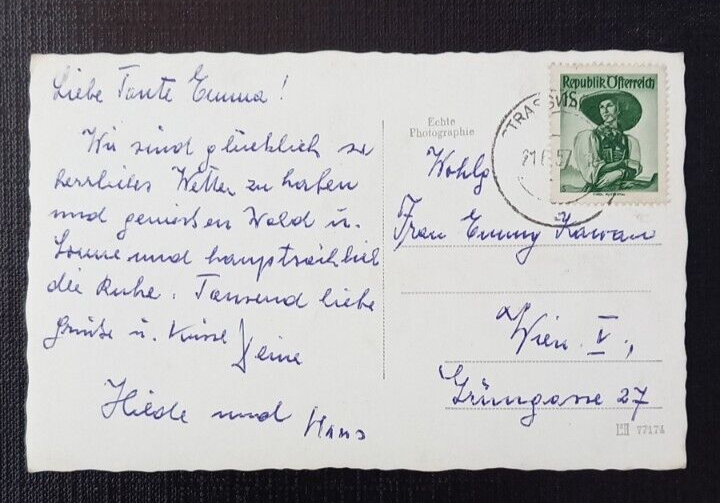 Liebe Tante Emma!
Wir sind glücklich so
herrliches Wetter zu haben
und geniessen Wald u.
Sonne und hauptsächlich
die Ruhe. Tausend liebe
Grüsse u. Küsse Deine
Heide und Hans
Echte
Photographie
Republik Österreich
1S
TRASSW
21
57
Wohlg
Frau Emmy
Wien. V.,
Grüngasse 27
77174